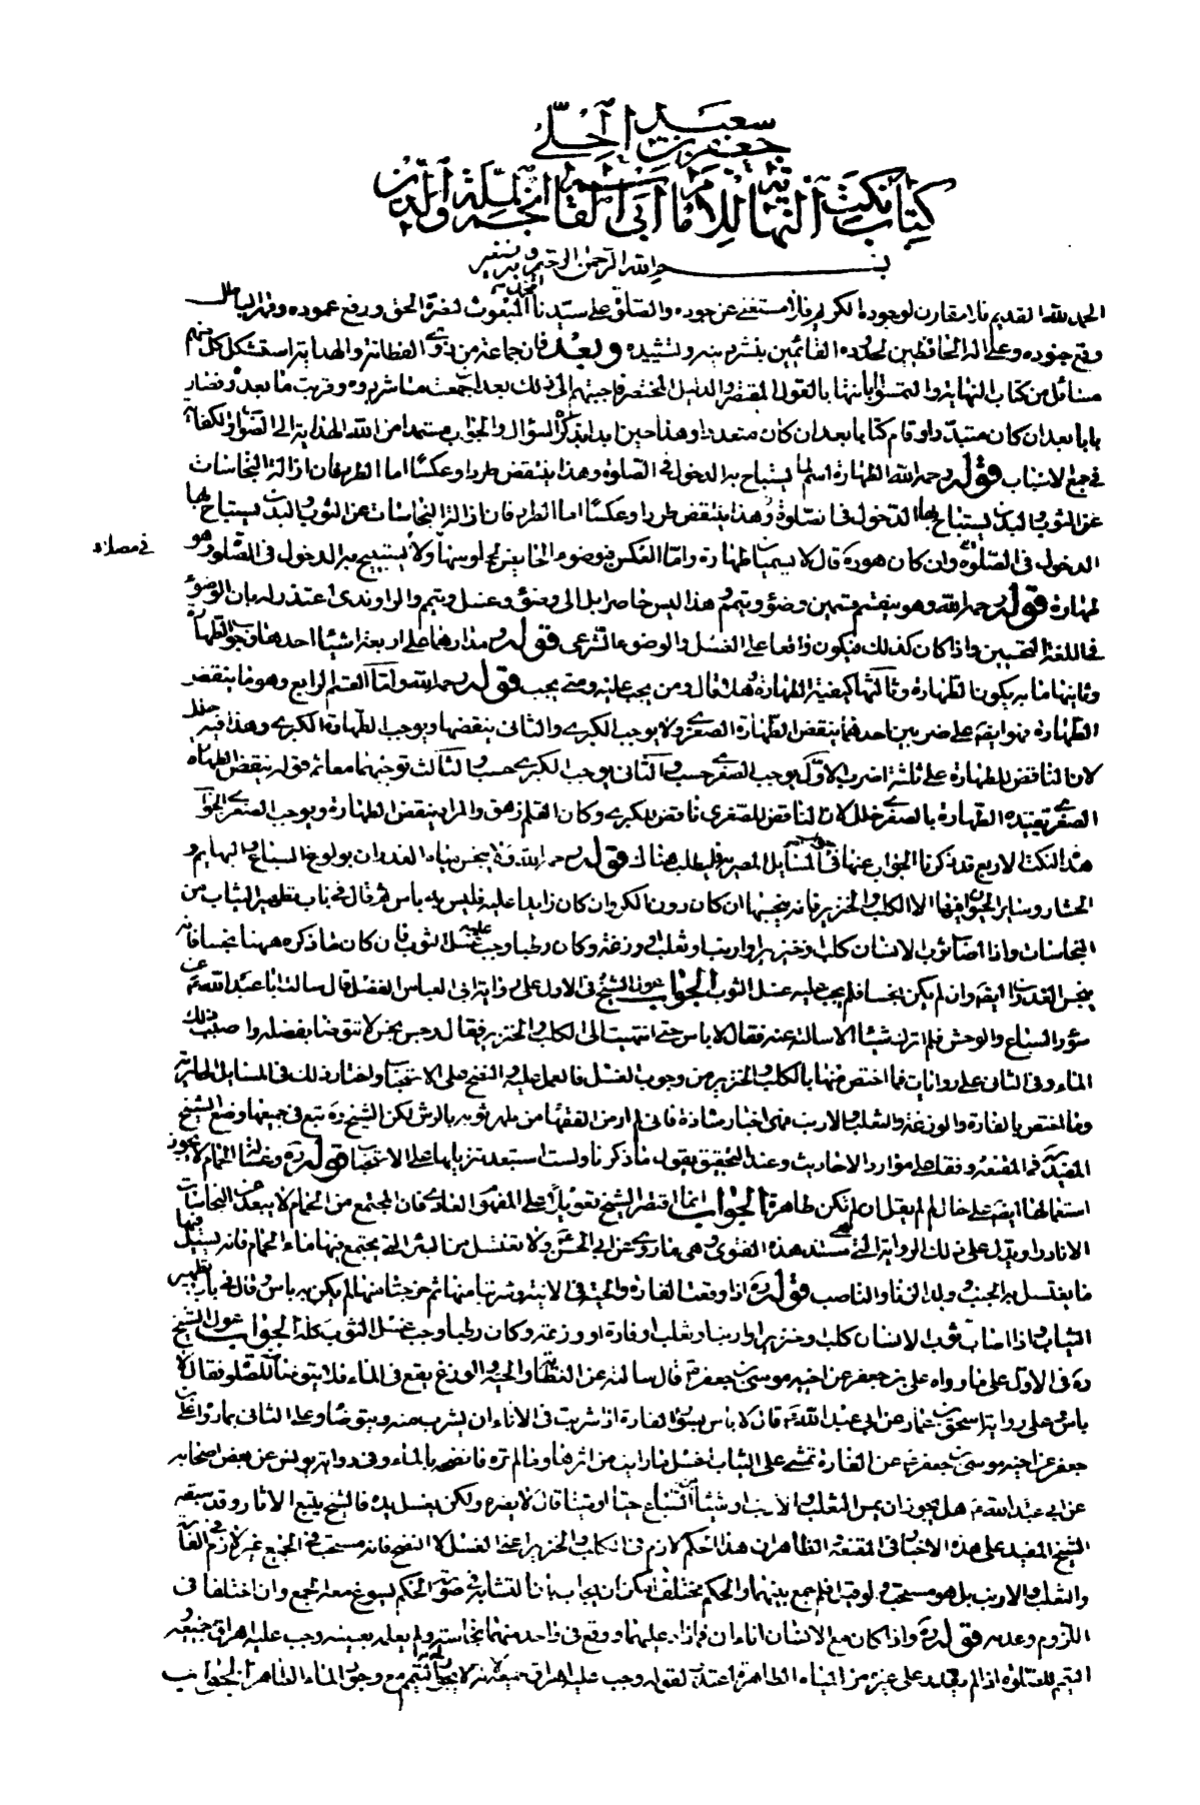 كتاب نكت النهاية للامام ابى القاسم نجم الملة والدين
جعفر بن سعيد الحلى
بسم الله الرحمن الرحيم وبه نستعين
الحمد لله القديم فلا مقارن لوجوده الكريم فلا مستغنى عن جوده والصلوة على سيدنا محمد المبعوث لنصرة الحق ورفع عموده وقهر الباطل
وقمع جنوده وعلى اله الحافظين لحدوده القائمين بنشر وتشييده وبعد فان جماعة من ذوى الفطانة والهداية استشكل كل منهم
مسائل من كتاب النهاية والتمسوا ابانتها بالقول المقتصر والدليل المختصر فاجبتهم الى ذلك بعد ان جمعت ما شردوه وقربت ما بعدوه فصار
بابا بعد ان كان متبددا وقام كتابا بعد ان كان متعددا وهذا حين ابدا بذكر السؤال والجواب مستمدا من الله الهداية الى الصواب والكفاية
فى جميع الاسباب قوله رحمه الله الطهارة اسم لما يستباح به الدخول فى الصلوة وهذا ينتقض طردا وعكسا اما الطرد فان ازالة النجاسات
عن الثوب والبدن يستباح بها الدخول فى الصلوة وهذا ينتقض طردا وعكسا اما الطرد فان ازالة النجاسات عن الثوب والبدن يستباح بها
الدخول فى الصلوة وان كان هو ره قال لا يسميان طهارة واما العكس فوضوء الحايض لجلوسها ولا يستبيح به الدخول فى الصلوة وهو
فى مصلاه
طهارة قوله رحمه الله وهو ينقسم قسمين وضوء وتيمم وهذا ليس حاصرا بل الى وضوء وغسل وتيمم والراوندى اعتذر له بان الوضوء
فى اللغة التحسين واذا كان كذلك فيكون واقعا على الغسل والوضوء الشرعى قوله ومدارهما على اربعة اشياء احدها وجوب الطهارة
وثانيها ما به يكون الطهارة وثالثها كيفية الطهارة وهلا قال ومن يجب عليه ومتى يجب قوله رحمه الله واما القسم الرابع وهو ما ينقض
الطهارة فهو ايضا على ضربين احدهما ينقض الطهارة الصغرى ولا يوجب الكبرى والثانى ينقضها ويوجب الطهارة الكبرى وهذا فيه خلل
لان الناقض للطهارة على ثلثة اضرب الاول يوجب الصغرى حسب والثانى يوجب الكبرى حسب والثالث توجبهما معا ثم قوله ينقض الطهارة
الصغرى تقييده الطهارة بالصغرى خلل لان الناقض للصغرى ناقض للكبرى وكان القلم زهق والمراد ينقض الطهارة ويوجب الصغرى الجواب
هذه النكت الاربع قد ذكرنا الجواب عنها فى جواب المسائل المصرية فليطلب هناك قوله رحمه الله فى ينجس مياه الغدران بولوغ السباع والبهايم و
الحشار وساير الحيوان فيها الا الكلب والخنزير فانه ينجسها ان كان دون الكر وان كان زايدا عليه فليس به باس ثم قال فى باب تطهير الثياب من
النجاسات واذا اصاب ثوب الانسان كلب او خنزير او ارنب او ثعلب او وزغة وكان رطبا وجب عليه غسل الثوب فان كان ما ذكره ههنا نجسا فانه
ينجس الغدران ايضا وان لم يكن نجسا فلم يجب عليه غسل الثوب الجواب عول الشيخ فى الاول على رواية ابى العباس الفضل قال سالت ابا عبد الله ع عن
سؤر السباع والوحش فلم اترك شيئا الا سالته عنه فقال لا باس حتى انتهيت الى الكلب والخنزير فقال رجس نجس لا تتوضا بفضله واصبب ذلك
الماء وفى الثانى على روايات فما اختص منها بالكلب والخنزير من وجوب الغسل فالعمل عليه والنضح على الاستحباب واختاره ذلك فى المسائل الحايرية
وما اختص بالفارة والوزغة والثعلب والارنب فهى اخبار شاذة فانى لم ار من الفقهاء من طهر ثوبه بالرش لكن الشيخ ره تبع فى جميعها وضع الشيخ
المفيد فى المقنعة وقف على موارد الاحاديث وعند التحقيق يقول ما ذكرناه ولست استبعد تنزيلها على الاستحباب قوله ره وغسالة الحمام لا يجوز
استعمالها ايضا على حال لم لم يقل ان لم تكن طاهرة الجواب انما اقتصر الشيخ تعويلا على المفهوم العادى فان المجتمع من الحمام لا يبعد عن النجاسات
الا نادرا ويدل على ذلك الرواية التى هى مستند هذه الفتوى وهى ما روى عن ابى الحسن ع ولا تغتسل من البئر التى يجتمع فيها ماء الحمام فانه يسيل فيها
ما يغتسل به الجنب وولد الزنا والناصب قوله ره اذا وقعت الفارة والحية فى الانية او شربتا منها ثم خرجتا منها لم يكن به باس وقال فى باب تطهير
الثياب واذا اصاب ثوب الانسان كلب او خنزير او ارنب او ثعلب او فارة او وزغة وكان رطبا وجب غسل الثوب كله الجواب عول الشيخ
ره فى الاول على ما رواه على بن جعفر عن اخيه موسى بن جعفر ع قال سالته عن العظاية والحية والوزغ يقع فى الماء فلا يموت ايتوضا منه للصلوة فقال لا
باس وعلى رواية اسحق بن عمار عن ابى عبد الله ع قال لا باس بسؤر الفارة اذا شربت فى الاناء ان يشرب منه ويتوضا وعلى الثانى بما رواه على بن
جعفر عن اخيه موسى بن جعفر ع عن الفارة تمشى على الثياب اغسل ما رايت من اثرها وما لم تره فانضحه بالماء وفى رواية يونس عن بعض اصحابه
عن ابى عبد الله ع هل يجوز ان يمس الثعلب والارنب او شيئا من السباع حيا او ميتا قال لا يضره ولكن يغسل يده فالشيخ يتبع الاثار وقد سبقه
الشيخ المفيد على هذه الاخبار فى المقنعة الظاهر ان هذا الحكم لازم فى الكلب والخنزير اعنى الغسل لا النضح فانه مستحب فى الجميع غير لازم فى الفارة
والثعلب والارنب بل هو مستحب ولو قيل فلم جمع بينهما والحكم مختلف امكن ان يجاب بان التشابه فى صورة الحكم يسوغ معه الجمع وان اختلفا فى
اللزوم وعدمه قوله ره واذا كان مع الانسان اناءان فما زاد عليهما ووقع فى واحد منهما نجاسة ولم يعلمه بعينه وجب عليه اهراق جميعه و
التيمم للصلوة اذا لم يقدر على غيره من المياه الطاهرة اعتذر لقوله وجب عليه اهراق جميعه بانه لا يجوز له التيمم مع وجود الماء الطاهر الجواب